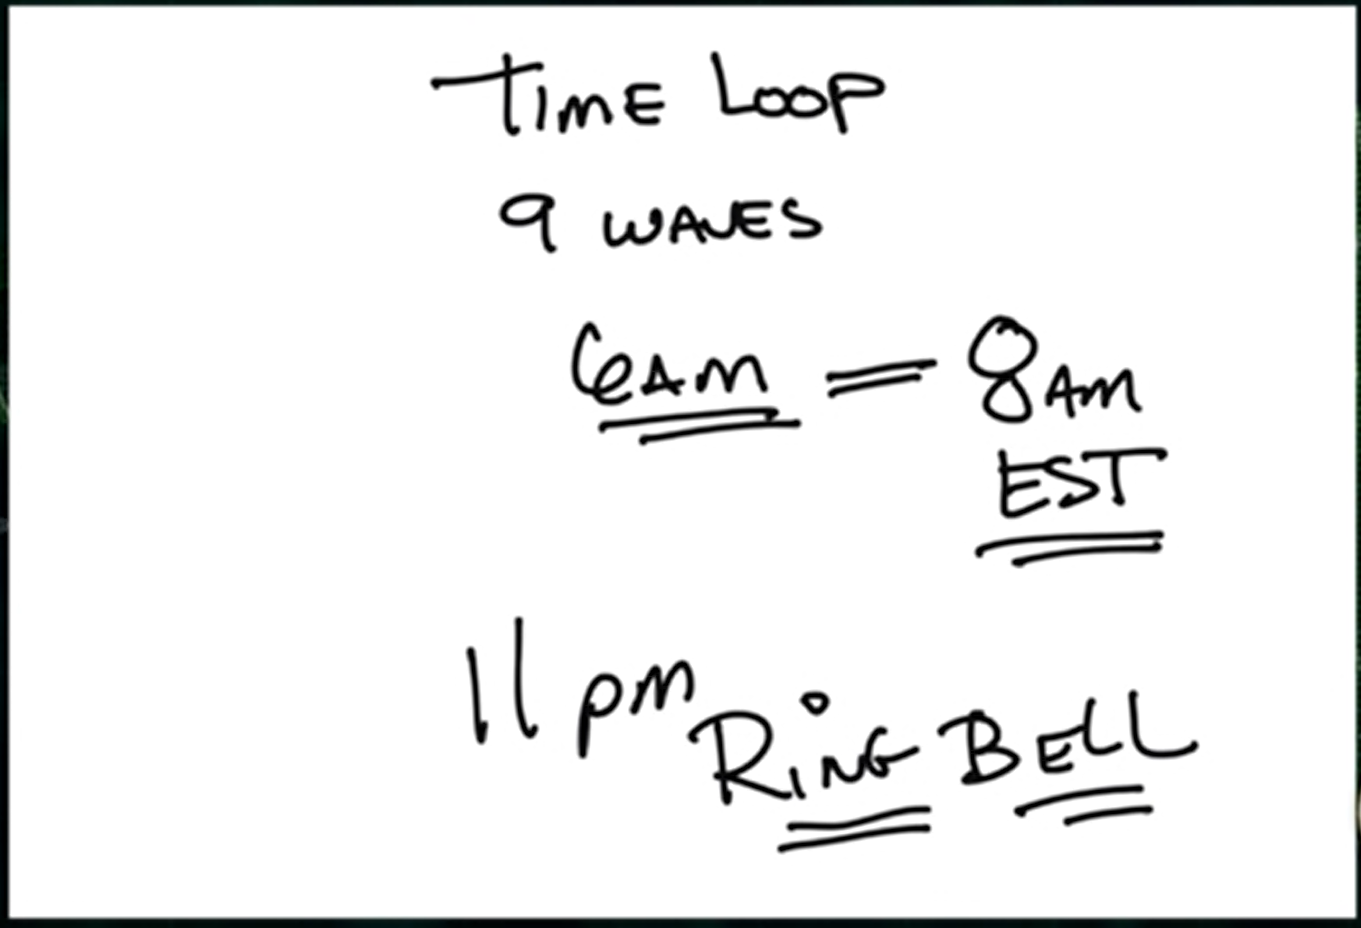 TIME LOOP
9 WAVES
6AM = 8AM
EST
11pm RING BELL